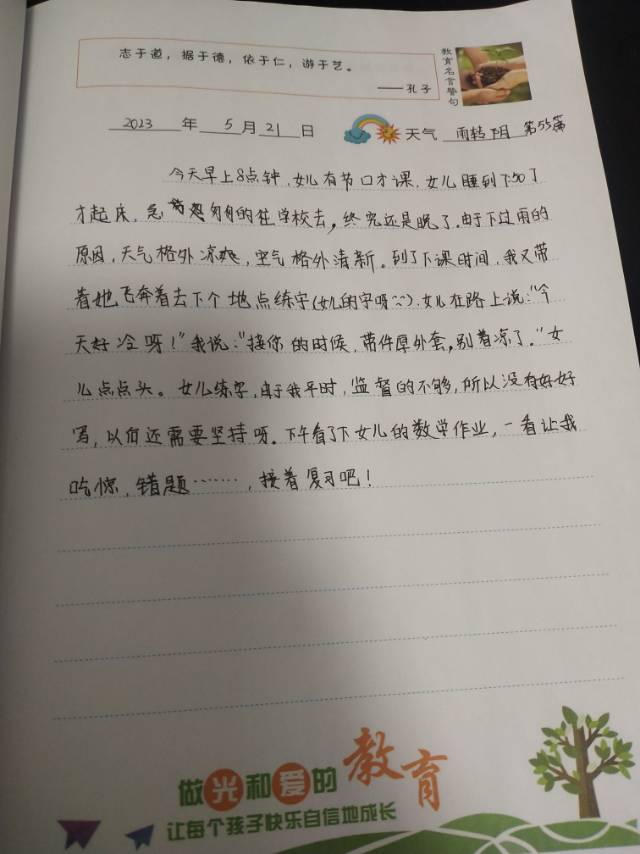 志于道，据于德，依于仁，游于艺。
——孔子
教育名言警句
2023 年 5 月 21 日 天气 雨转阴 第55篇
今天早上8点钟，女儿有节口才课，女儿睡到7:50了
才起床，急匆匆的往学校去，终究还是晚了。由于下过雨的
原因，天气格外凉爽，空气格外清新。到了下课时间，我又带
着她飞奔着去下个地点练字(女儿的字呀~~)，女儿在路上说："今
天好冷呀！"我说："接你的时候，带件厚外套，别着凉了。"女
儿点点头。女儿练字，由于我平时，监督的不够，所以没有好好
写，以何还需要坚持呀。下午看了下女儿的数学作业，一看让我
吃惊，错题……，接着复习吧！
做光和爱的教育
让每个孩子快乐自信地成长